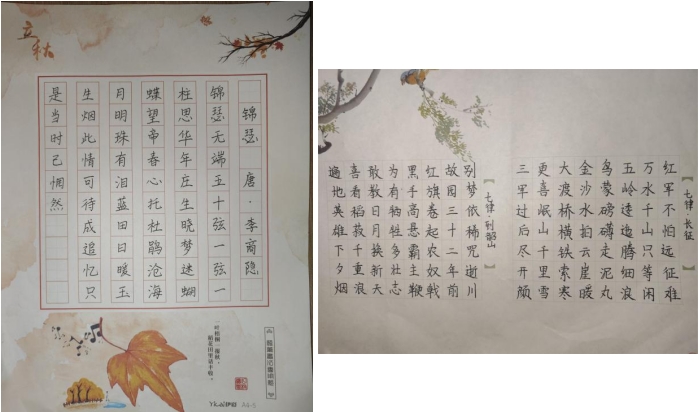 立秋
锦瑟 唐·李商隐
锦瑟无端五十弦一弦一
柱思华年庄生晓梦迷蝴
蝶望帝春心托杜鹃沧海
月明珠有泪蓝田日暖玉
生烟此情可待成追忆只
是当时已惘然
一叶梧桐一报秋，
稻花田里话丰收。
【七律 长征】
红军不怕远征难
万水千山只等闲
五岭逶迤腾细浪
乌蒙磅礴走泥丸
金沙水拍云崖暖
大渡桥横铁索寒
更喜岷山千里雪
三军过后尽开颜
【七律 到韶山】
别梦依稀咒逝川
故园三十二年前
红旗卷起农奴戟
黑手高悬霸主鞭
为有牺牲多壮志
敢教日月换新天
喜看稻菽千重浪
遍地英雄下夕烟